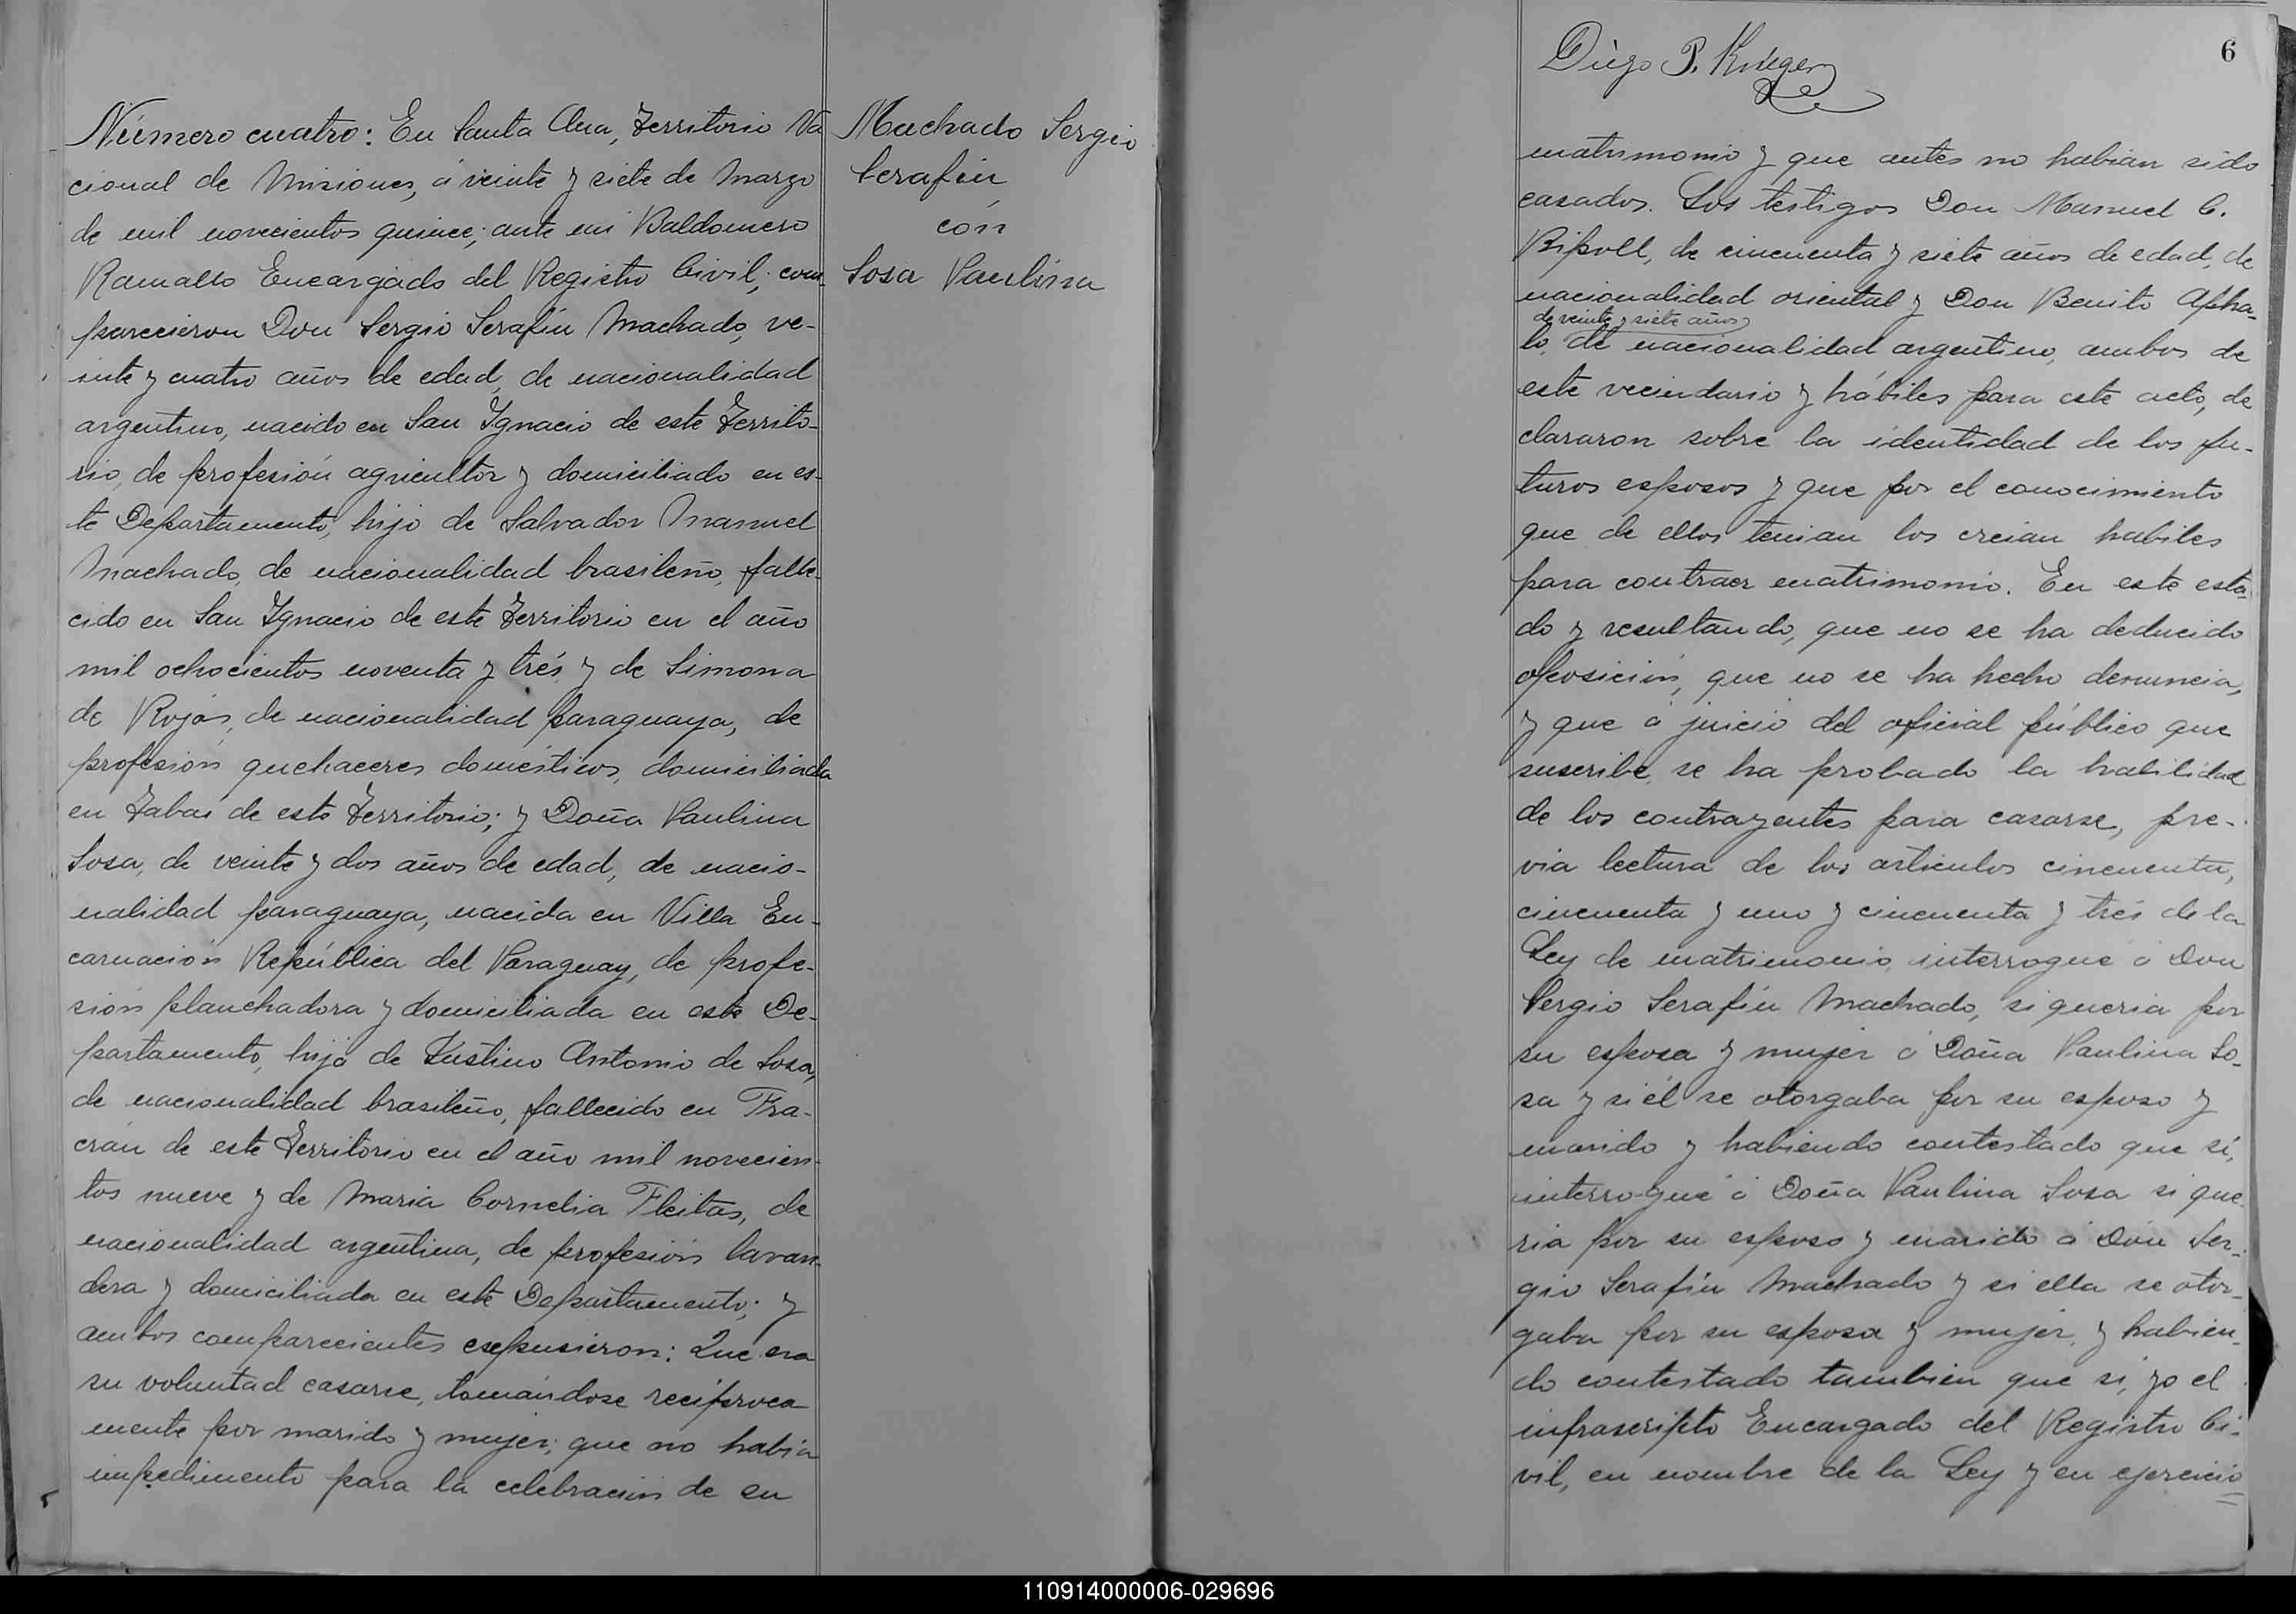 Número cuatro: En Santa Ana, Territorio Na
cional de Misiones, á veinte y siete de Marzo
de mil novecientos quince; ante mi Baldomero
Ramallo Encargado del Registro Civil; com-
parecieron Don Sergio Serafin Machado, ve-
inte y cuatro años de edad, de nacionalidad
argentino, nacido en San Ygnacio de este Territo-
rio, de profesión agricultor y domiciliado en es-
te Departamento, hijo de Salvador Manuel
Machado, de nacionalidad brasileño, falle-
cido en San Ygnacio de este Territorio en el año
mil ochocientos noventa y trés y de Simona
de Rojas, de nacionalidad paraguaya, de
profesión quehaceres domésticos, domiciliada
en Zabai de este Territorio; y Doña Paulina
Sosa, de veinte y dos años de edad, de nacio-
nalidad paraguaya, nacida en Villa En-
carnación República del Paraguay, de profe-
sión planchadora y domiciliada en este De-
partamento, hija de Justino Antonio de Sosa,
de nacionalidad brasileño, fallecido en Fra-
crán de este Territorio en el año mil novecien-
tos nueve y de Maria Cornelia Fleitas, de
nacionalidad argentina, de profesión lavan-
dera y domiciliada en este Departamento; y
ambos comparecientes expusieron: Que era
su voluntad casarse, tomándose recíproca
mente por marido y mujer; que no habia
impedimento para la celebración de su
Machado Sergio
Serafin
con
Sosa Paulina
Diego P. Krieger
6
matrimonio y que antes no habian sido
casados. Los testigos Don Manuel C.
Ripoll, de cincuenta y siete años de edad, de
nacionalidad oriental y Don Benito Apha-
de veinte y siete años
lo, de nacionalidad argentino, ambos de
este vecindario y hábiles para este acto, de
clararon sobre la identidad de los fu-
turos esposos y que por el conocimiento
que de ellos tenian los creian habiles
para contraer matrimonio. En este esta-
do y resultando, que no se ha deducido
oposición, que no se ha hecho denuncia,
y que á juicio del oficial público que
suscribe, se ha probado la habilidad
de los contrayentes para casarse, pre-
via lectura de los artículos cincuenta,
cincuenta y uno y cincuenta y trés de la
Ley de matrimonio, interrogué á Don
Sergio Serafin Machado, si queria por
su esposa y mujer á Doña Paulina So-
sa y si él se otorgaba por su esposo y
marido y habiendo contestado que sí,
interrogué á Doña Paulina Sosa si que-
ria por su esposo y marido á Don Ser-
gio Serafin Machado y si ella se otor-
gaba por su esposa y mujer, y habien-
do contestado tambien que si, yo el
infrascripto Encargado del Registro Ci-
vil, en nombre de la Ley y en ejercicio
110914000006-029696